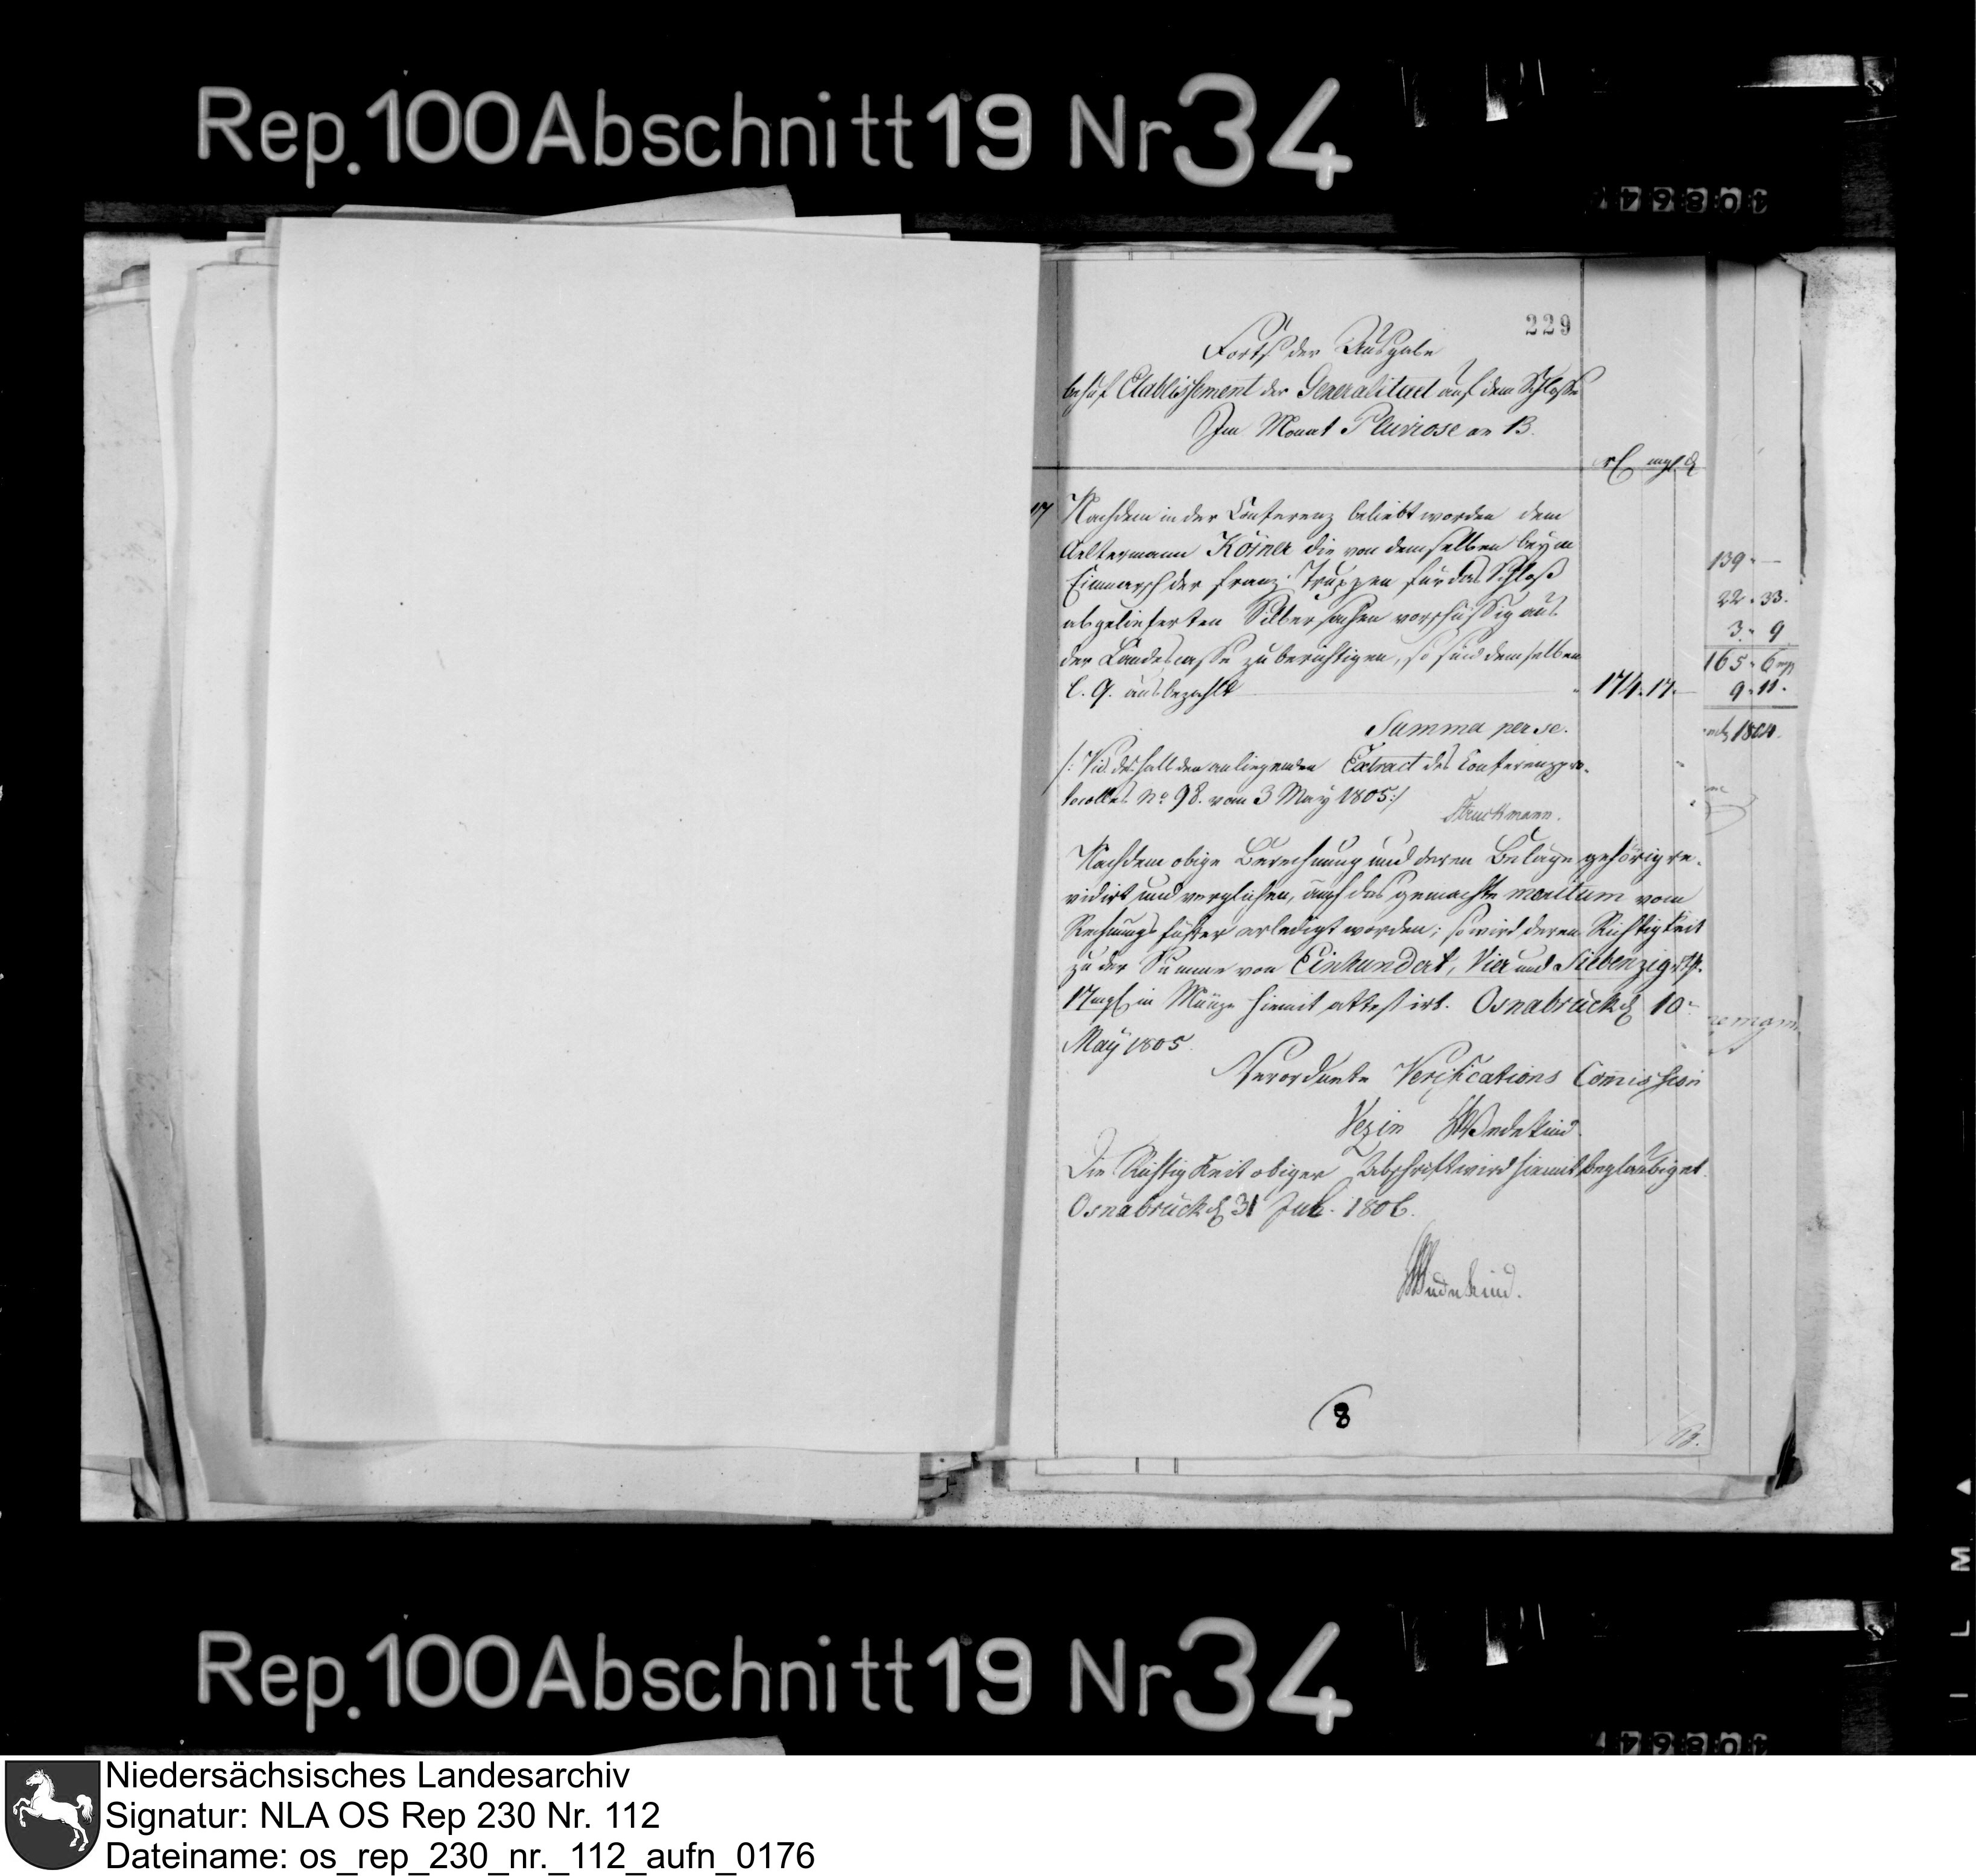 Rep. 100 Abschnitt 19 Nr 34
229
Forts. der Ausgabe
behuf Etablissement der Generalitaet auf dem Schlosse
Im Monat Pluviose an 13.
rt mgl d
17 Nachdem in der Conferenz beliebt worden dem
Aeltermann Körner die von demselben beym
Einmarsch der franz. Truppen für das Schloß
abgelieferten Silbersachen vorschüssig aus
der Landescasse zu berichtigen, so sind demselben
l. q. ausbezahlt 174. 17. —
Summa per se.
/: Vid. deshalb den anliegenden Extract des Conferenzpro-
tocolles No 98. vom 3 May 1805 :/
Struckmann.
Nachdem obige Berechnung und deren Beläge gehörig re-
vidirt und verglichen, auch das gemachte monitum vom
Rechnungsführer erledigt worden; so wird deren Richtigkeit
zu der Summe von Einhundert, Vier und Siebenzig rt.
17 mgl in Münze hiemit attestirt. Osnabrück d 10
May 1805.
Verordnete Verifications Commission
Vezin Wedekind.
Die Richtigkeit obiger Abschrift wird hiemit beglaubiget.
Osnabrück d 31 Jul. 1806.
Wedekind.
8
139. —
22. 33.
3. 9
165. 6
9. 11.
1804.
Rep. 100 Abschnitt 19 Nr 34
Niedersächsisches Landesarchiv
Signatur: NLA OS Rep 230 Nr. 112
Dateiname: os_rep_230_nr._112_aufn_0176